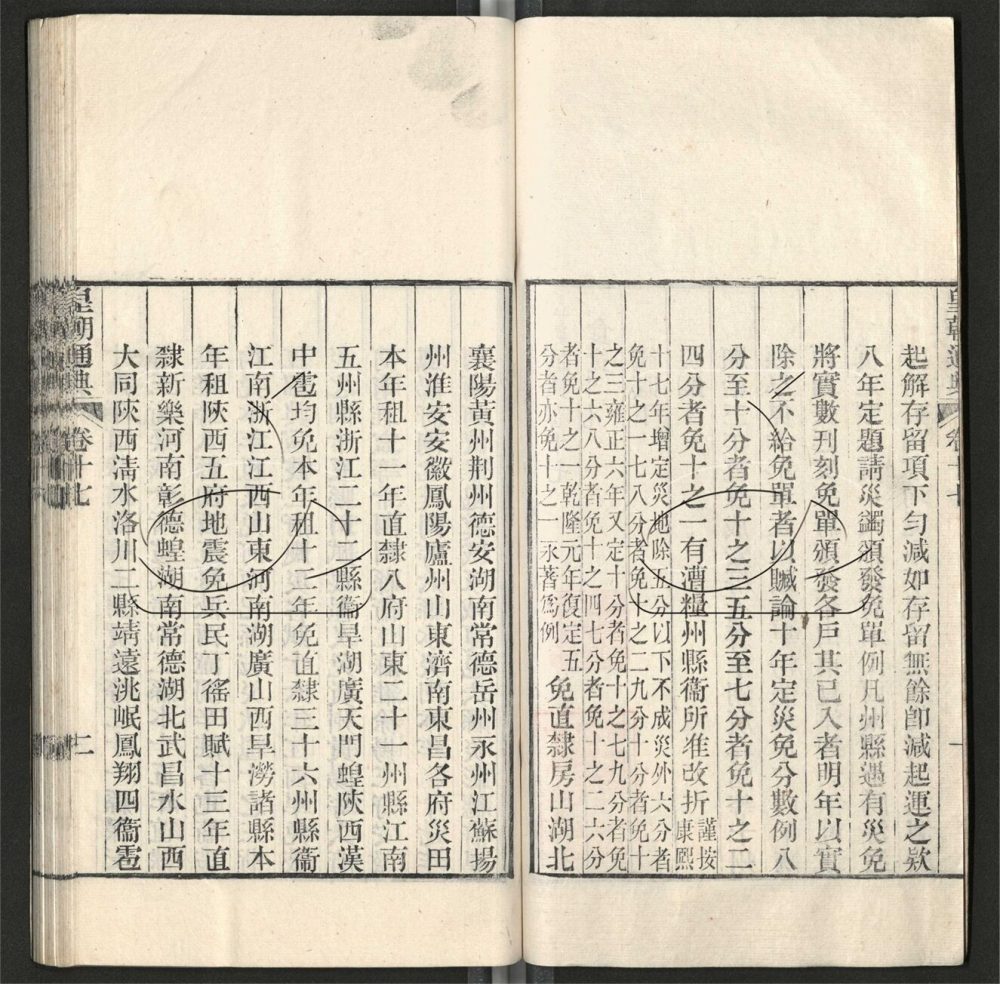 起解存留項下勻減如存留無餘卽減起運之欵
八年定題請災蠲頒發免單例凡州縣遇有災免
將實數刊刻免單頒發各戸其已入者明年以實
除之不給免單者以贓論十年定災免分數例八
分至十分者免十之三五分至七分者免十之二
四分者免十之一有漕糧州縣衞所准改折謹按康熙
十七年增定災地除五分以下不成災外六分者
免十之一七八分者免十之二九分十分者免十
之三雍正六年又定十分者免十之七九分者免
十之六八分者免十之四七分者免十之二六分
者免十之一乾隆元年復定五
分者亦免十之一永著爲例
免直隸房山湖北
皇朝通典 卷十七 二
襄陽黃州荆州德安湖南常德岳州永州江蘇揚
州淮安安徽鳳陽廬州山東濟南東昌各府災田
本年租十一年直隸八府山東二十一州縣江南
五州縣浙江二十二縣衞旱湖廣天門蝗陝西漢
中雹均免本年租十二年免直隸三十六州縣衞
江南浙江江西山東河南湖廣山西旱澇諸縣本
年租陝西五府地震免兵民丁徭田賦十三年直
隸新樂河南彰德蝗湖南常德湖北武昌水山西
大同陝西淸水洛川二縣靖遠洮岷鳳翔四衞雹